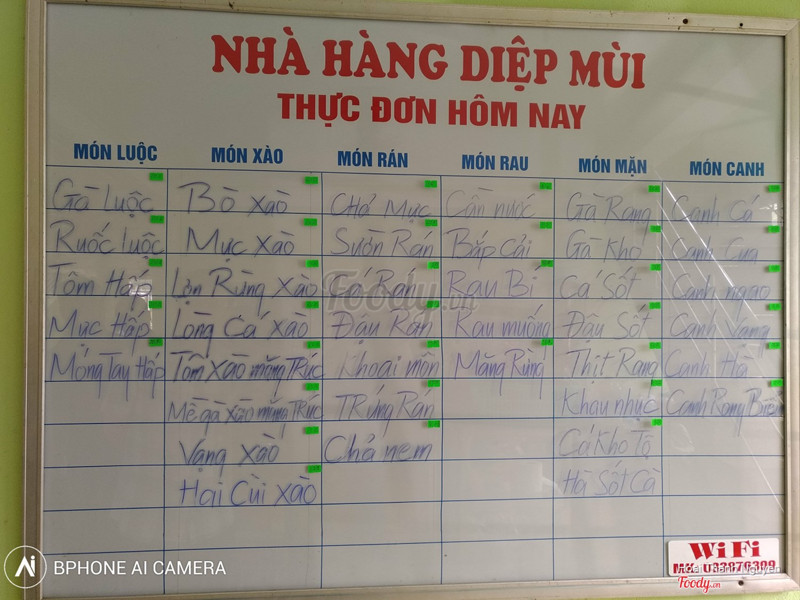 NHÀ HÀNG DIỆP MÙI
THỰC ĐƠN HÔM NAY
MÓN LUỘC MÓN XÀO MÓN RÁN MÓN RAU MÓN MẶN MÓN CANH
Gà luộc Bò xào Chả Mực Cần nước Gà Rang Canh Cá
Ruốc luộc Mực Xào Sườn Rán Bắp Cải Gà Kho Canh Cua
Tôm Hấp Lợn Rừng Xào Cá Rán Rau Bí Cá Sốt Canh ngao
Mực Hấp Lòng Cá Xào Đậu Rán Rau muống Đậu Sốt Canh Vạng
Móng Tay Hấp Tôm Xào măng Trúc Khoai môn Măng Rừng Thịt Rang Canh Hà
Mề gà xào măng Trúc Trứng Rán Khau nhục Canh Rong Biển
Vạng Xào Chả nem Cá Kho Tộ
Hai Cùi Xào Hà Sốt Cà
Foody.vn
WiFi
MK:
Foody.vn
BPHONE AI CAMERA